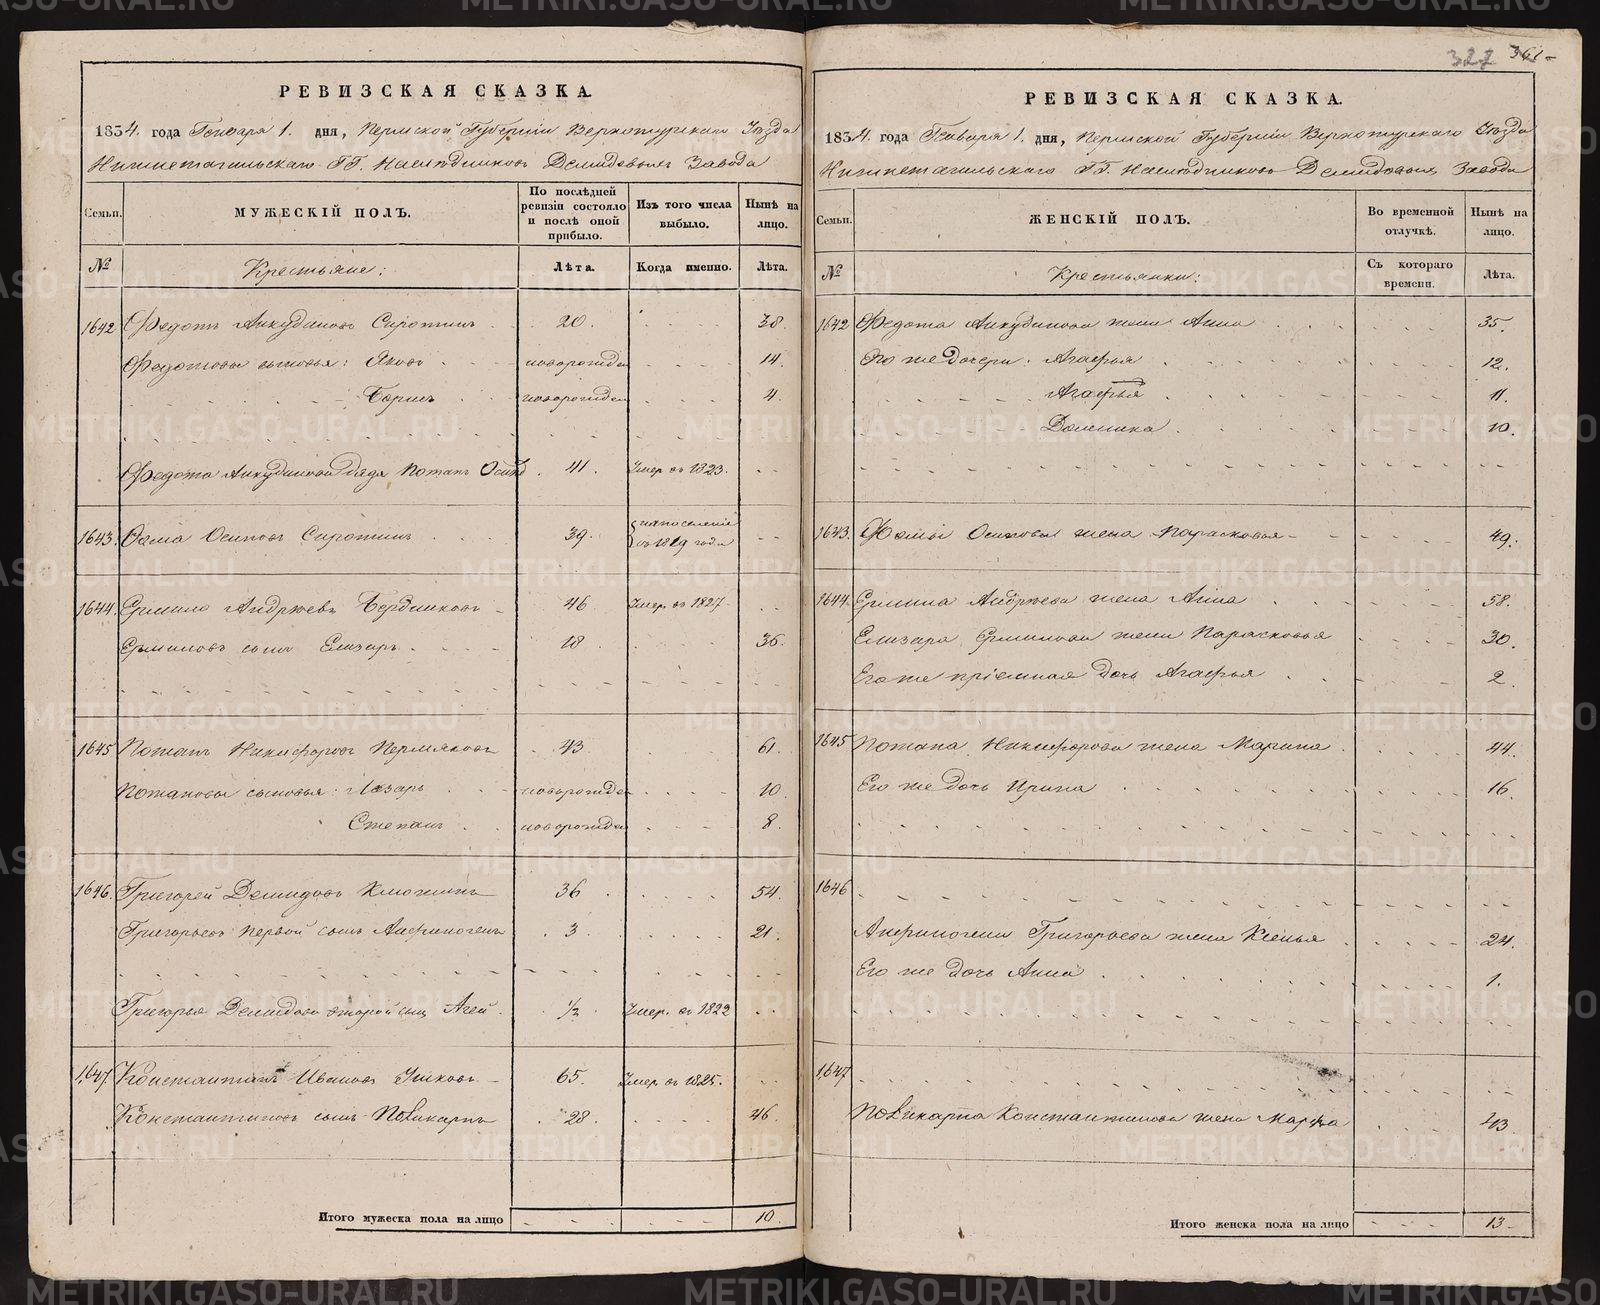 РЕВИЗСКАЯ СКАЗКА.
1834. года Генваря 1. дня, Пермской Губерніи Верхотурскаго Уѣзда
Нижнетагильскаго ГГ. Наслѣдниковъ Демидовыхъ Завода
Семьи.
МУЖЕСКІЙ ПОЛЪ.
По послѣдней ревизіи состояло и послѣ оной прибыло.
Изъ того числа выбыло.
Нынѣ на лицо.
№ Крестьяне: Лѣта. Когда именно. Лѣта.
1642 Федотъ Анкудиновъ Сиротинъ 20. 38.
Федотовы сыновья: Яковъ новорожден 14.
Борисъ новорожден 4.
Федота Анкудинова дядя Потапъ Осип 41. Умер въ 1823.
1643. Фома Осиповъ Сиротинъ 39. на поселеніе въ 1819 году
1644. Ермило Андреевъ Бердниковъ 46 Умер. въ 1827
Ермиловъ сынъ Елизаръ 18 36.
1645 Потапъ Никифоровъ Пермяковъ 43 61.
Потаповы сыновья: Лазарь новорожден 10
Степанъ новорожден 8.
1646. Григорей Демидовъ Клюкинъ 36 54.
Григорьевъ первой сынъ Анфиногенъ 3 21.
Григорья Демидова второй сынъ Агей 1/2 Умер. въ 1822
1647. Константинъ Ивановъ Ушковъ 65. Умер въ 1825.
Константиновъ сынъ Поликарпъ 28. 46
Итого мужеска пола на лицо 10.
327 361
РЕВИЗСКАЯ СКАЗКА.
1834 года Генваря 1. дня, Пермской Губерніи Верхотурскаго Уѣзда
Нижнетагильскаго ГГ. Наслѣдниковъ Демидовыхъ Завода
Семьи.
ЖЕНСКІЙ ПОЛЪ.
Во временной отлучкѣ.
Нынѣ на лицо.
№ Крестьянки: Съ котораго времени. Лѣта.
1642 Федота Анкудинова жена Анна 35.
Его же дочери: Агафья 12.
Агафья 11.
Домника 10.
1643. Фомы Осипова жена Парасковья 49.
1644. Ермила Андреева жена Анна 58.
Елизара Ермилова жена Парасковья 30.
Его же пріемная дочь Агафья 2
1645 Потапа Никифорова жена Марина 44.
Его же дочь Ирина 16.
1646
Анфиногена Григорьева жена Ксенья 24.
Его же дочь Анна 1.
1647
Поликарпа Константинова жена Марфа 43.
Итого женска пола на лицо 13
METRIKI.GASO-URAL.RU